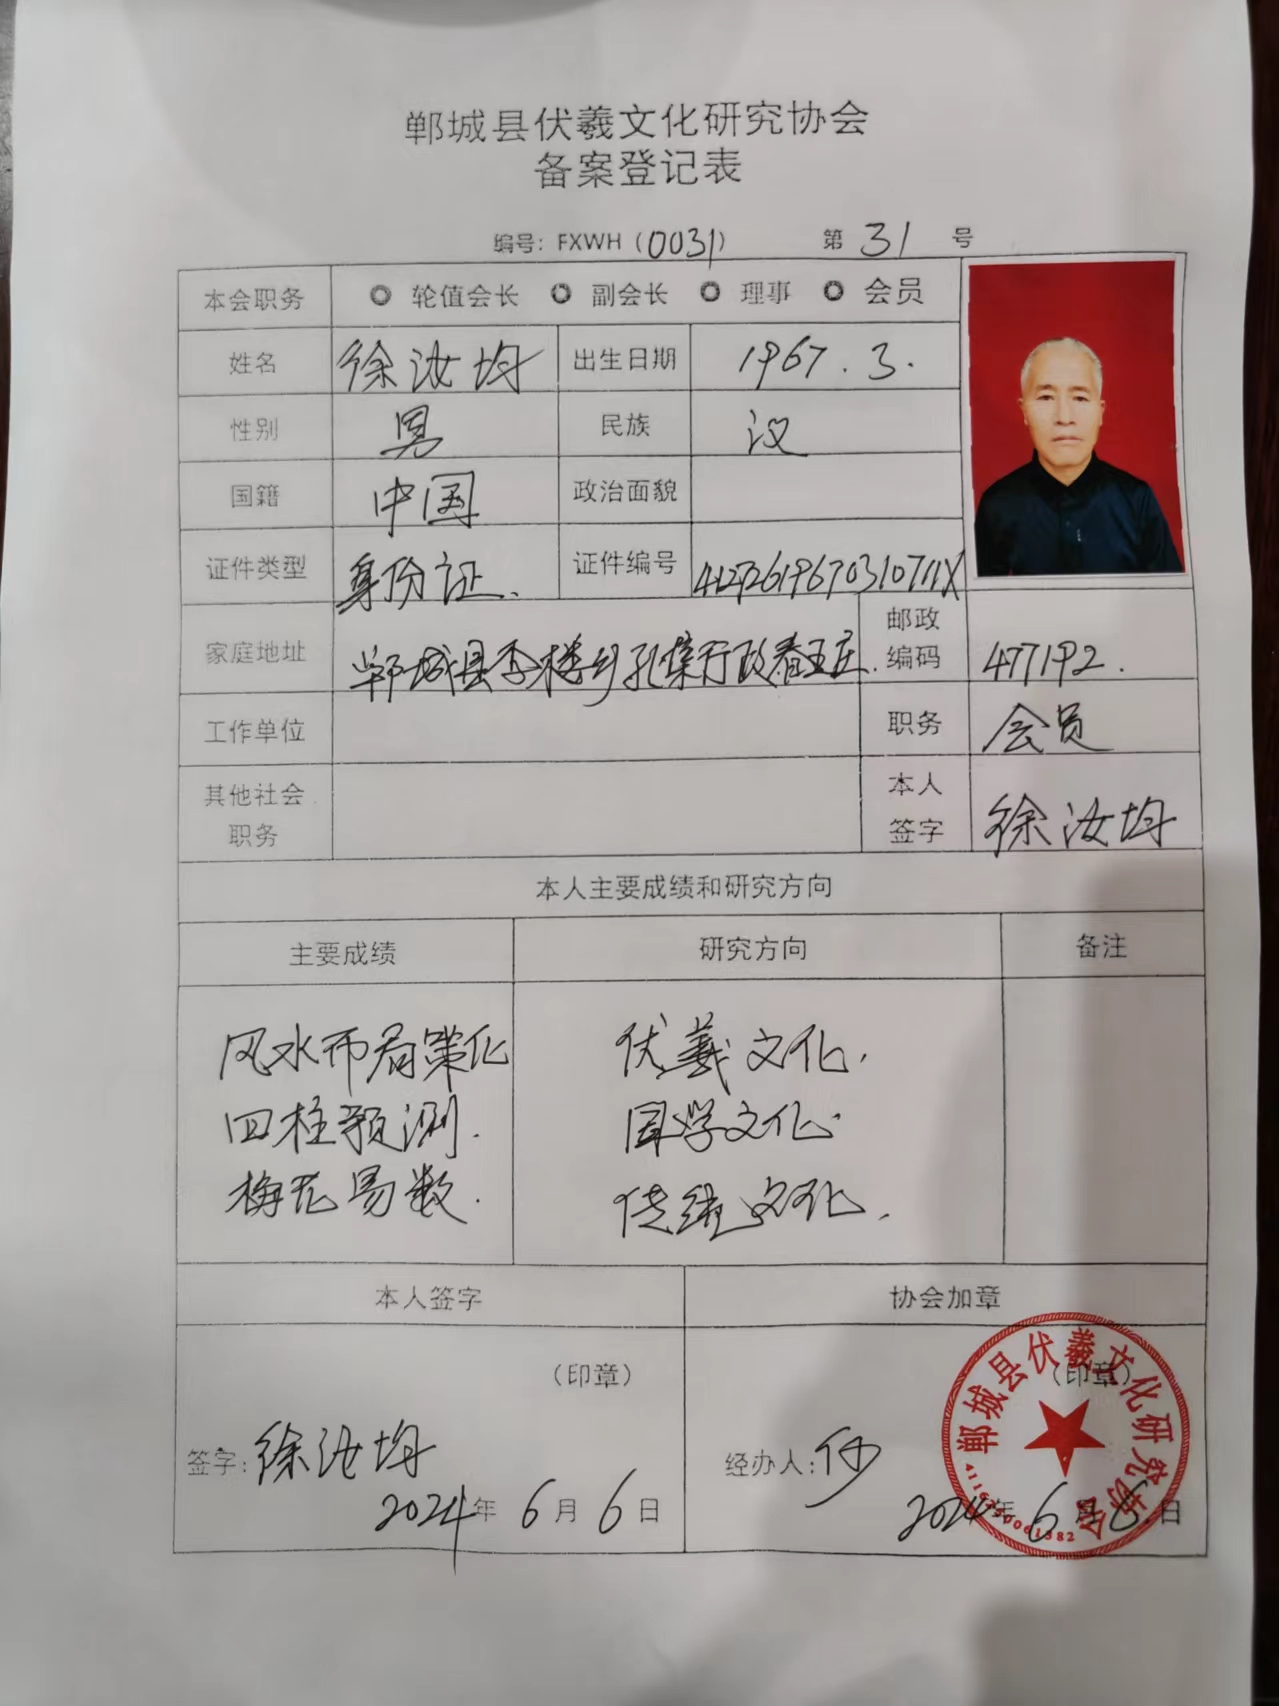 郸城县伏羲文化研究协会
备案登记表
编号：FXWH（0031） 第 31 号
本会职务 轮值会长 副会长 理事 会员
姓名 徐汝均 出生日期 1967.3.
性别 男 民族 汉
国籍 中国 政治面貌
证件类型 身份证. 证件编号 41272619670310711X
家庭地址 郸城县李楼乡孔集行政春王庄. 邮政编码 477192.
工作单位 职务 会员
其他社会职务 本人签字 徐汝均
本人主要成绩和研究方向
主要成绩 研究方向 备注
风水布局策化 伏羲文化.
四柱预测. 国学文化.
梅花易数. 传统文化.
本人签字 协会加章
（印章） （印章）
签字：徐汝均 经办人：
2024年6月6日 2024年6月6日
郸城县伏羲文化研究协会